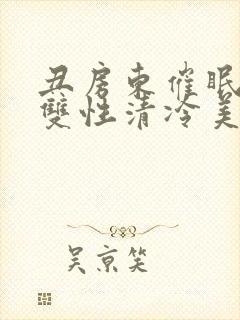 丑房東催眠
雙性清冷美
吴京笑